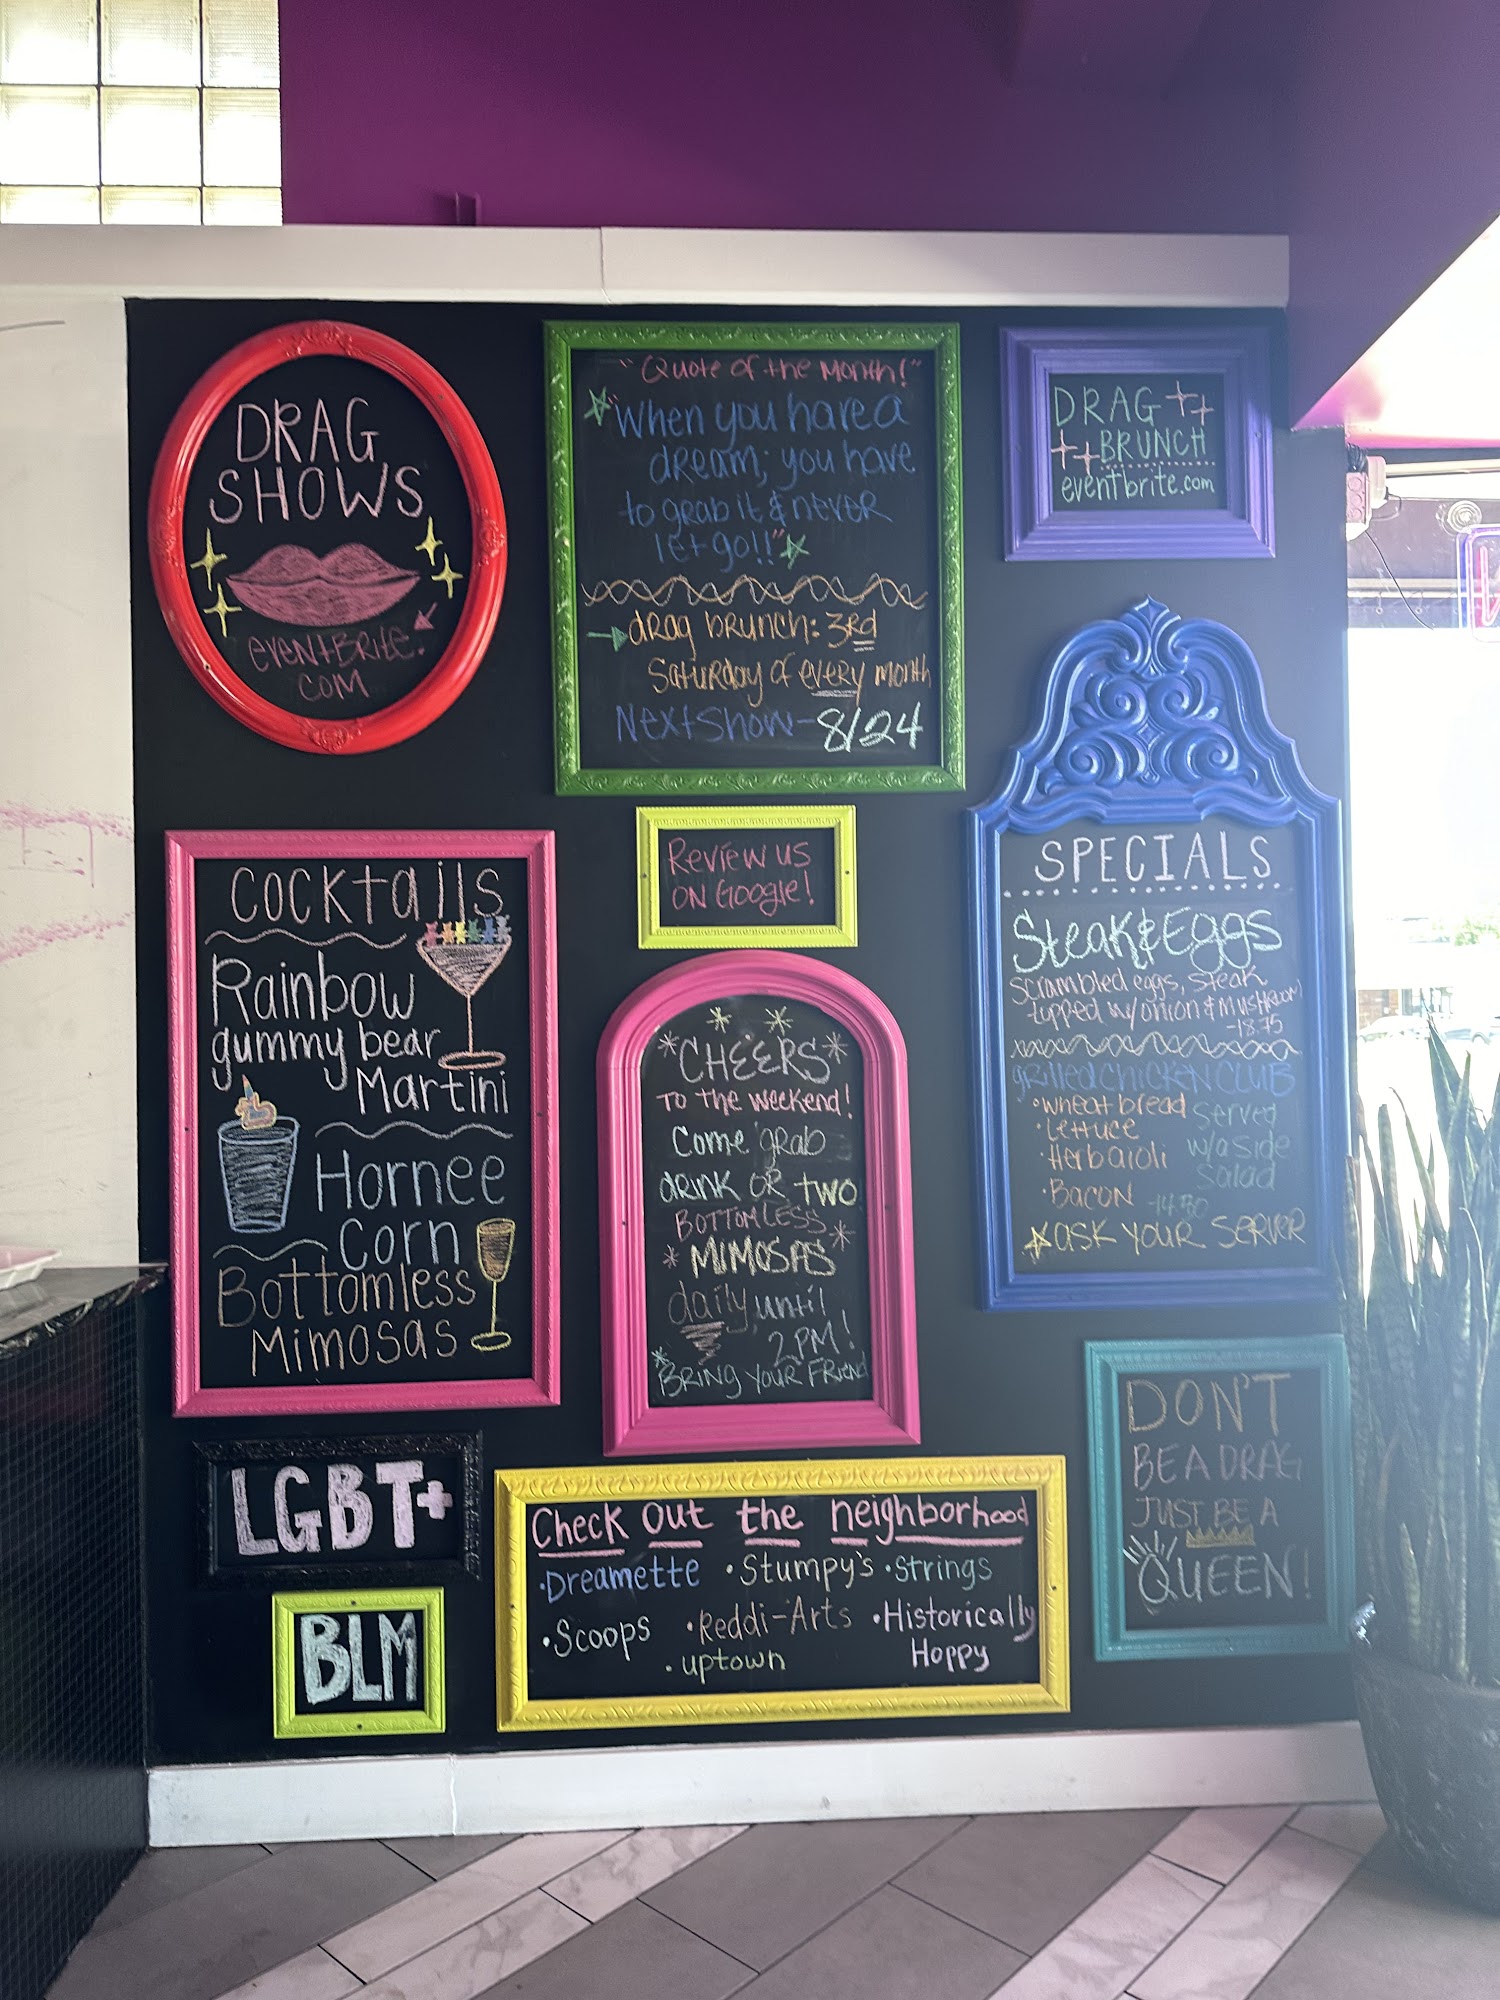 DRAG
SHOWS
EVENTBRITE.
COM
"Quote of the Month!"
"When you have a
dream, you have
to grab it & never
let go!!"
drag brunch: 3rd
Saturday of every month
Next Show - 8/24
DRAG
BRUNCH
eventbrite.com
Cocktails
Rainbow
gummy bear
Martini
Hornee
Corn
Bottomless
Mimosas
Review us
on Google!
*CHEERS*
TO THE WEEKEND!
Come grab
drink or two
BOTTOMLESS
* MIMOSAS *
daily, until
2PM!
*BRING YOUR FRIEND
SPECIALS
Steak & Eggs
scrambled eggs, steak
topped w/ onion & mushroom
-18.75
grilled chicken club
• wheat bread
• lettuce
• Herb aioli
• Bacon
served
w/a side
salad
ASK YOUR SERVER
LGBT+
BLM
Check out the neighborhood
• Dreamette • Stumpy's • Strings
• Scoops • Reddi-Arts • Historically
• uptown Hoppy
DON'T
BE A DRAG
JUST BE A
QUEEN!